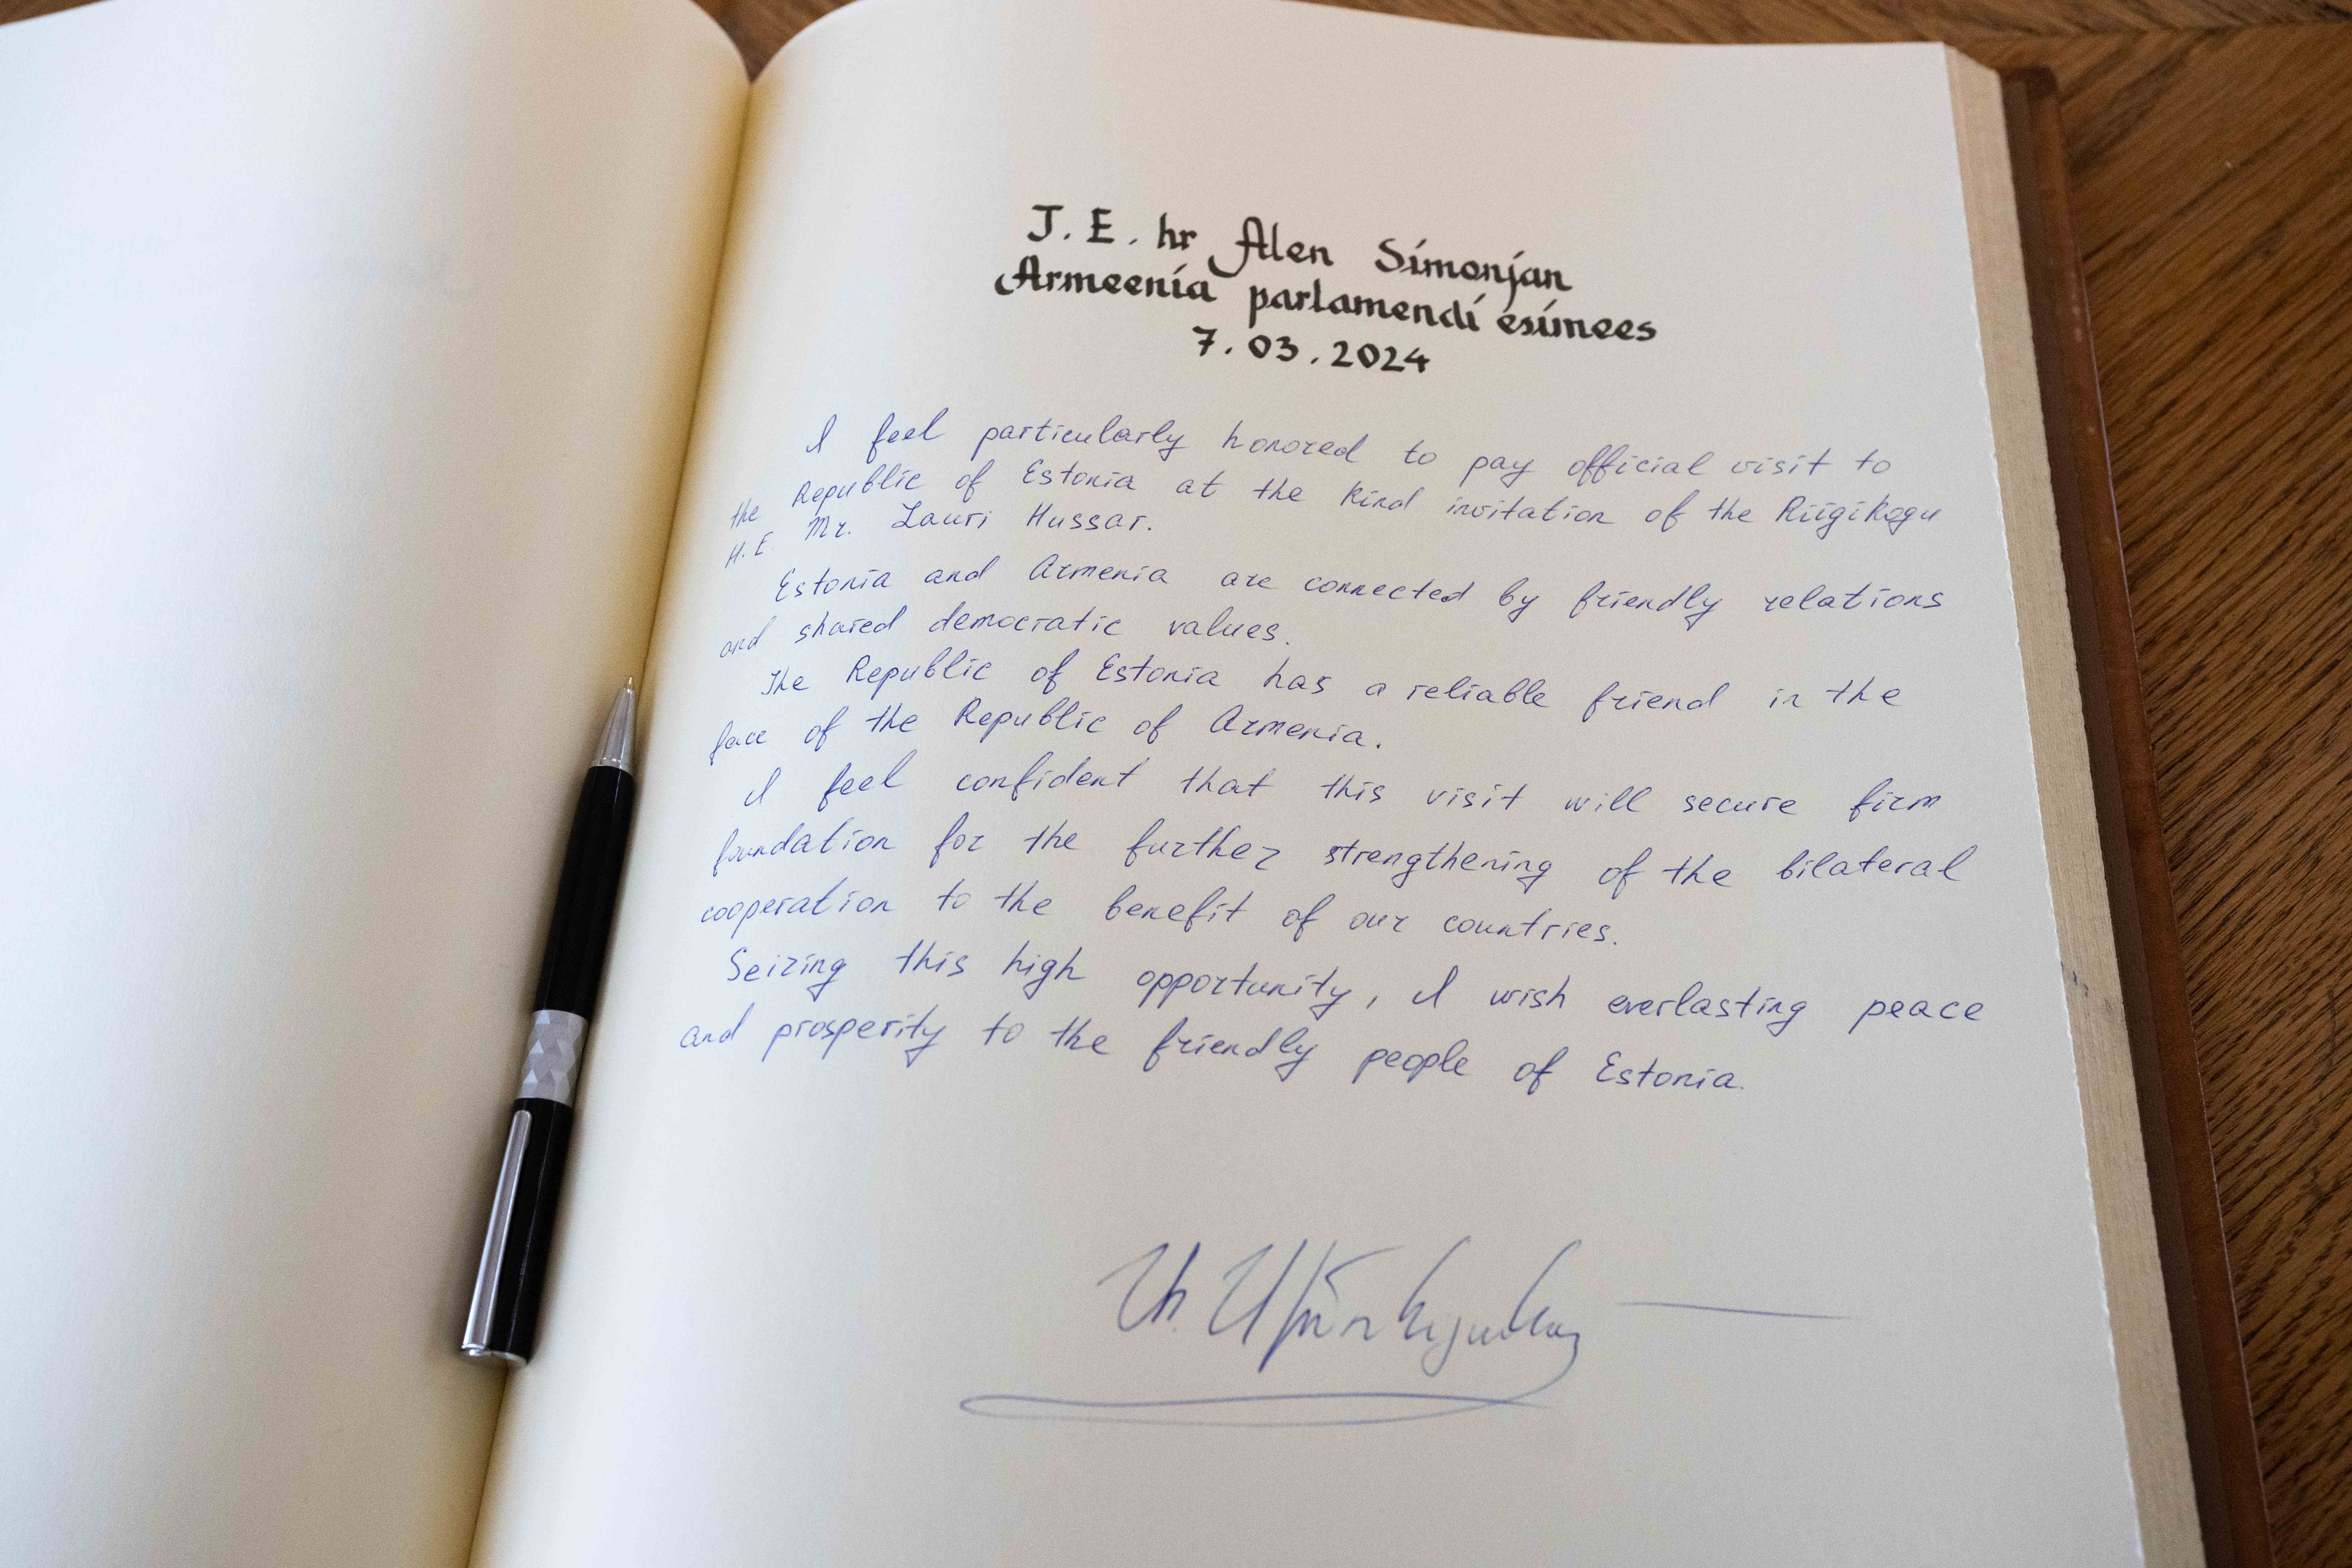 J. E. hr Alen Simonjan
Armeenia parlamendi esimees
7. 03. 2024
I feel particularly honored to pay official visit to
the Republic of Estonia at the kind invitation of the Riigikogu
H.E. Mr. Lauri Hussar.
Estonia and Armenia are connected by friendly relations
and shared democratic values.
The Republic of Estonia has a reliable friend in the
face of the Republic of Armenia.
I feel confident that this visit will secure firm
foundation for the further strengthening of the bilateral
cooperation to the benefit of our countries.
Seizing this high opportunity, I wish everlasting peace
and prosperity to the friendly people of Estonia.